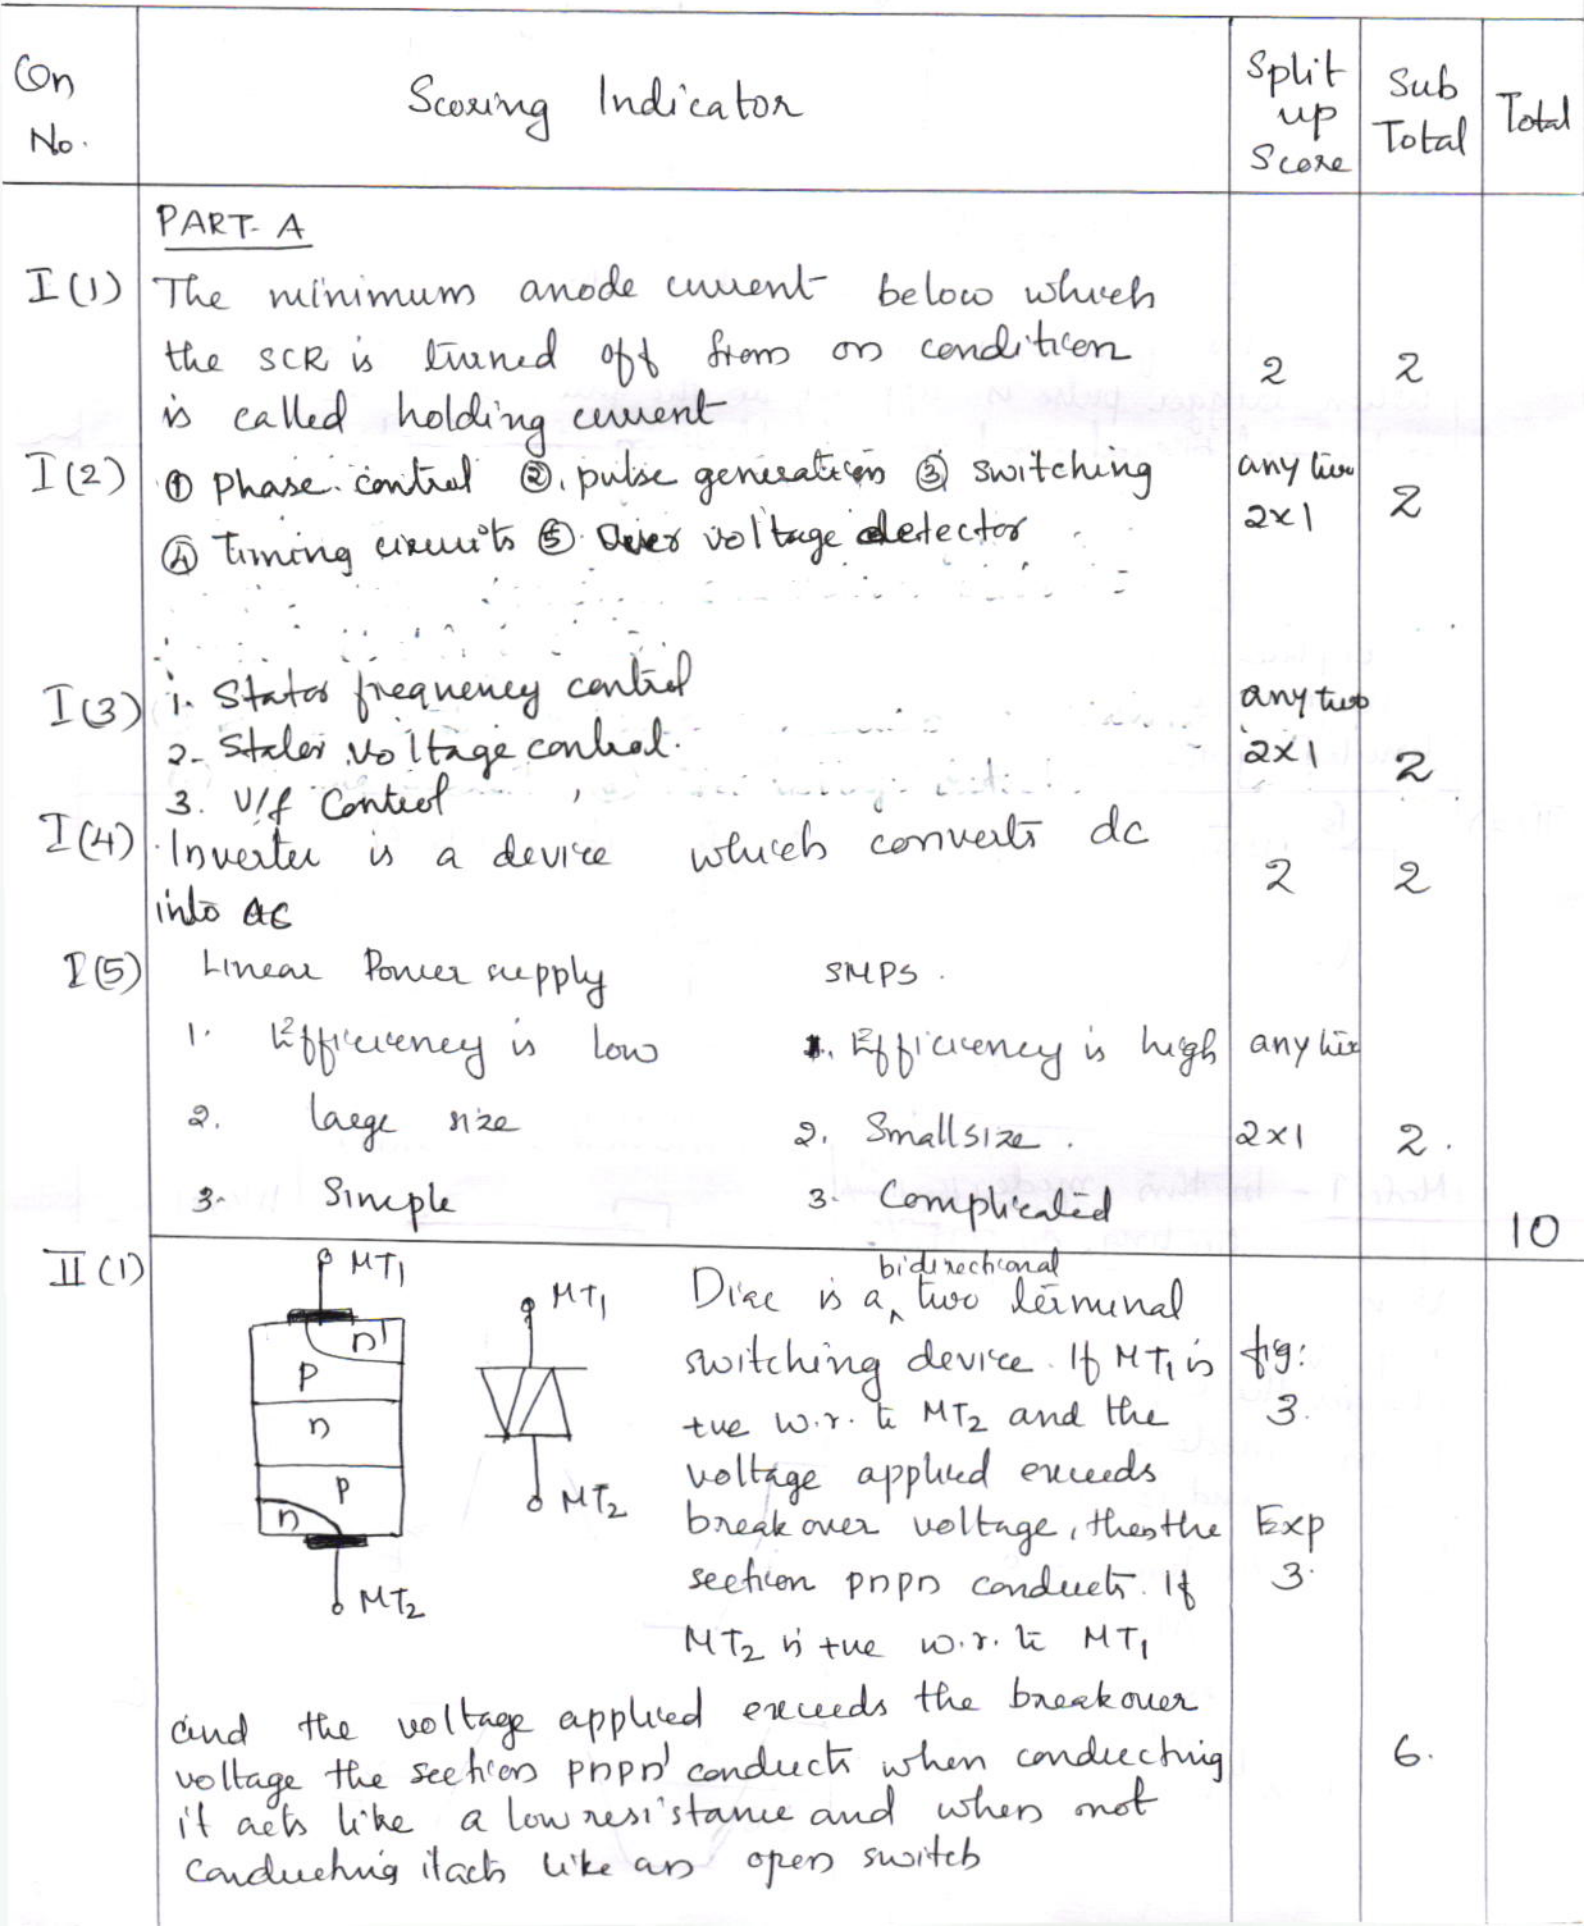 Qn No.
Scoring Indicator
Split up Score
Sub Total
Total
PART- A
I(1) The minimum anode current below which
the SCR is turned off from on condition
is called holding current
2 2
I(2) ① Phase control ②. pulse generation ③ switching
④ Timing circuits ⑤. Over voltage detector
any two
2x1 2
I(3) 1. Stator frequency control
2- Stator voltage control.
3. V/f Control
any two
2x1 2
I(4) Inverter is a device which converts dc
into AC
2 2
I(5) Linear Power supply SMPS.
1. Efficiency is low 1. Efficiency is high any two
2. large size 2. Small size. 2x1 2.
3. Simple 3. Complicated
10
II(1) MT1
n'
p
n
p
n
MT2
MT1
MT2
Diac is a bidirectional two terminal
switching device. If MT1 is fig:
+ve w.r. to MT2 and the 3.
voltage applied exceeds
break over voltage, then the Exp
section pnpn conducts. If 3.
MT2 is +ve w.r. to MT1
and the voltage applied exceeds the breakover
voltage the section pnpn' conducts when conducting 6.
it acts like a low resistance and when not
conducting it acts like an open switch